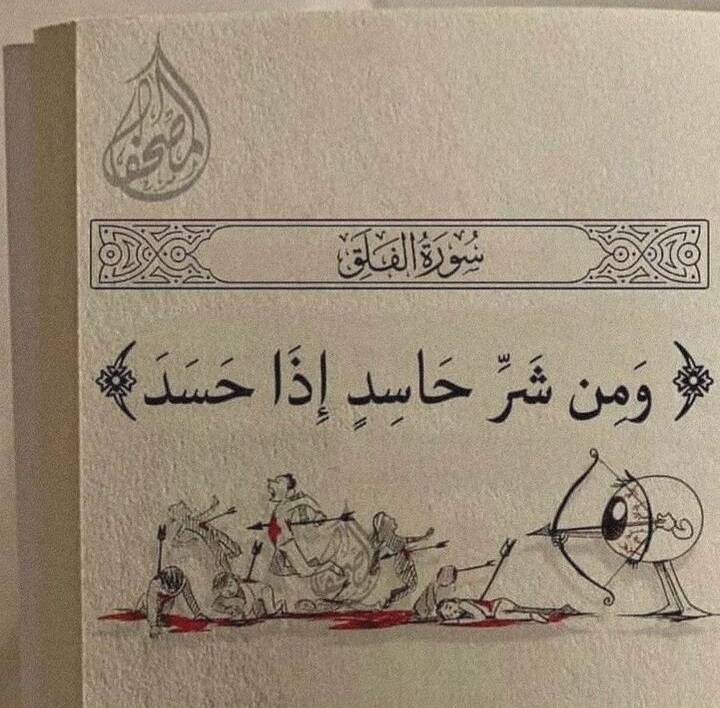 المصحف
سُورَةُ الفَلَقِ
﴿ وَمِن شَرِّ حَاسِدٍ إِذَا حَسَدَ ﴾